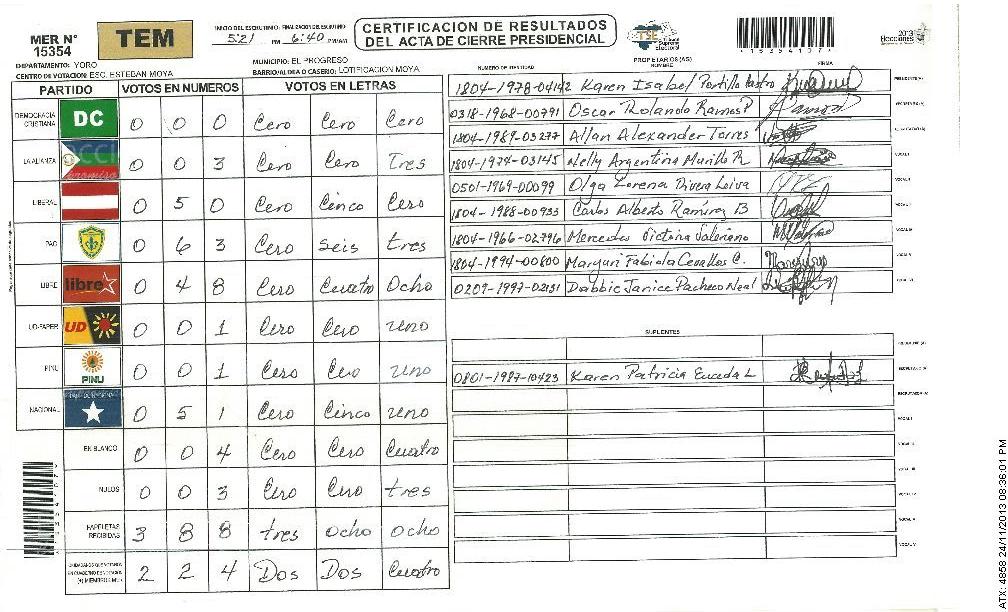 MER N° 15354
TEM
INICIO DEL ESCRUTINIO: FINALIZACION DEL ESCRUTINIO
5:21 PM 6:40 PM/AM
CERTIFICACION DE RESULTADOS
DEL ACTA DE CIERRE PRESIDENCIAL
TSE Tribunal Supremo Electoral
15354107
2013
Elecciones
DEPARTAMENTO: YORO
MUNICIPIO: EL PROGRESO
CENTRO DE VOTACION: ESC. ESTEBAN MOYA
BARRIO/ALDEA O CASERIO: LOTIFICACION MOYA
PARTIDO VOTOS EN NUMEROS VOTOS EN LETRAS
DEMOCRACIA CRISTIANA DC 0 0 0 Cero Cero Cero
LA ALIANZA 0 0 3 Cero Cero Tres
LIBERAL 0 5 0 Cero Cinco Cero
PAC 0 6 3 Cero seis tres
LIBRE libre 0 4 8 Cero Cuatro Ocho
UD-FAPER UD 0 0 1 Cero Cero uno
PINU PINU 0 0 1 Cero Cero uno
NACIONAL 0 5 1 Cero Cinco uno
EN BLANCO 0 0 4 Cero Cero Cuatro
NULOS 0 0 3 Cero Cero tres
PAPELETAS RECIBIDAS 3 8 8 tres ocho ocho
CIUDADANOS QUE VOTARON EN CUADERNO DE VOTACION (+) MIEMBROS MER 2 2 4 Dos Dos Cuatro
PROPIETARIOS (AS)
NUMERO DE IDENTIDAD NOMBRE FIRMA
1804-1978-04142 Karen Isabel Portillo Castro PRESIDENTE (A)
0318-1968-00791 Oscar Rolando Ramos P SECRETARIO (A)
1804-1989-03277 Allan Alexander Torres ESCRUTADOR (A)
1804-1974-03145 Nelly Argentina Murillo R VOCAL I
0501-1969-00099 Olga Lorena Rivera Leiva VOCAL II
1804-1988-00933 Carlos Alberto Ramirez B VOCAL III
1804-1966-02796 Mercedes Victoria Valeriano VOCAL IV
1804-1994-00800 Maryuri Fabiola Ceballos C. VOCAL V
0209-1997-02131 Dabbie Janice Pacheco Neal VOCAL VI
SUPLENTES
PRESIDENTE (A)
0801-1987-10423 Karen Patricia Euceda L SECRETARIO (A)
ESCRUTADOR (A)
VOCAL I
VOCAL II
VOCAL III
VOCAL IV
VOCAL V
VOCAL VI
ATX: 4858 24/11/2013 08:36:01 PM